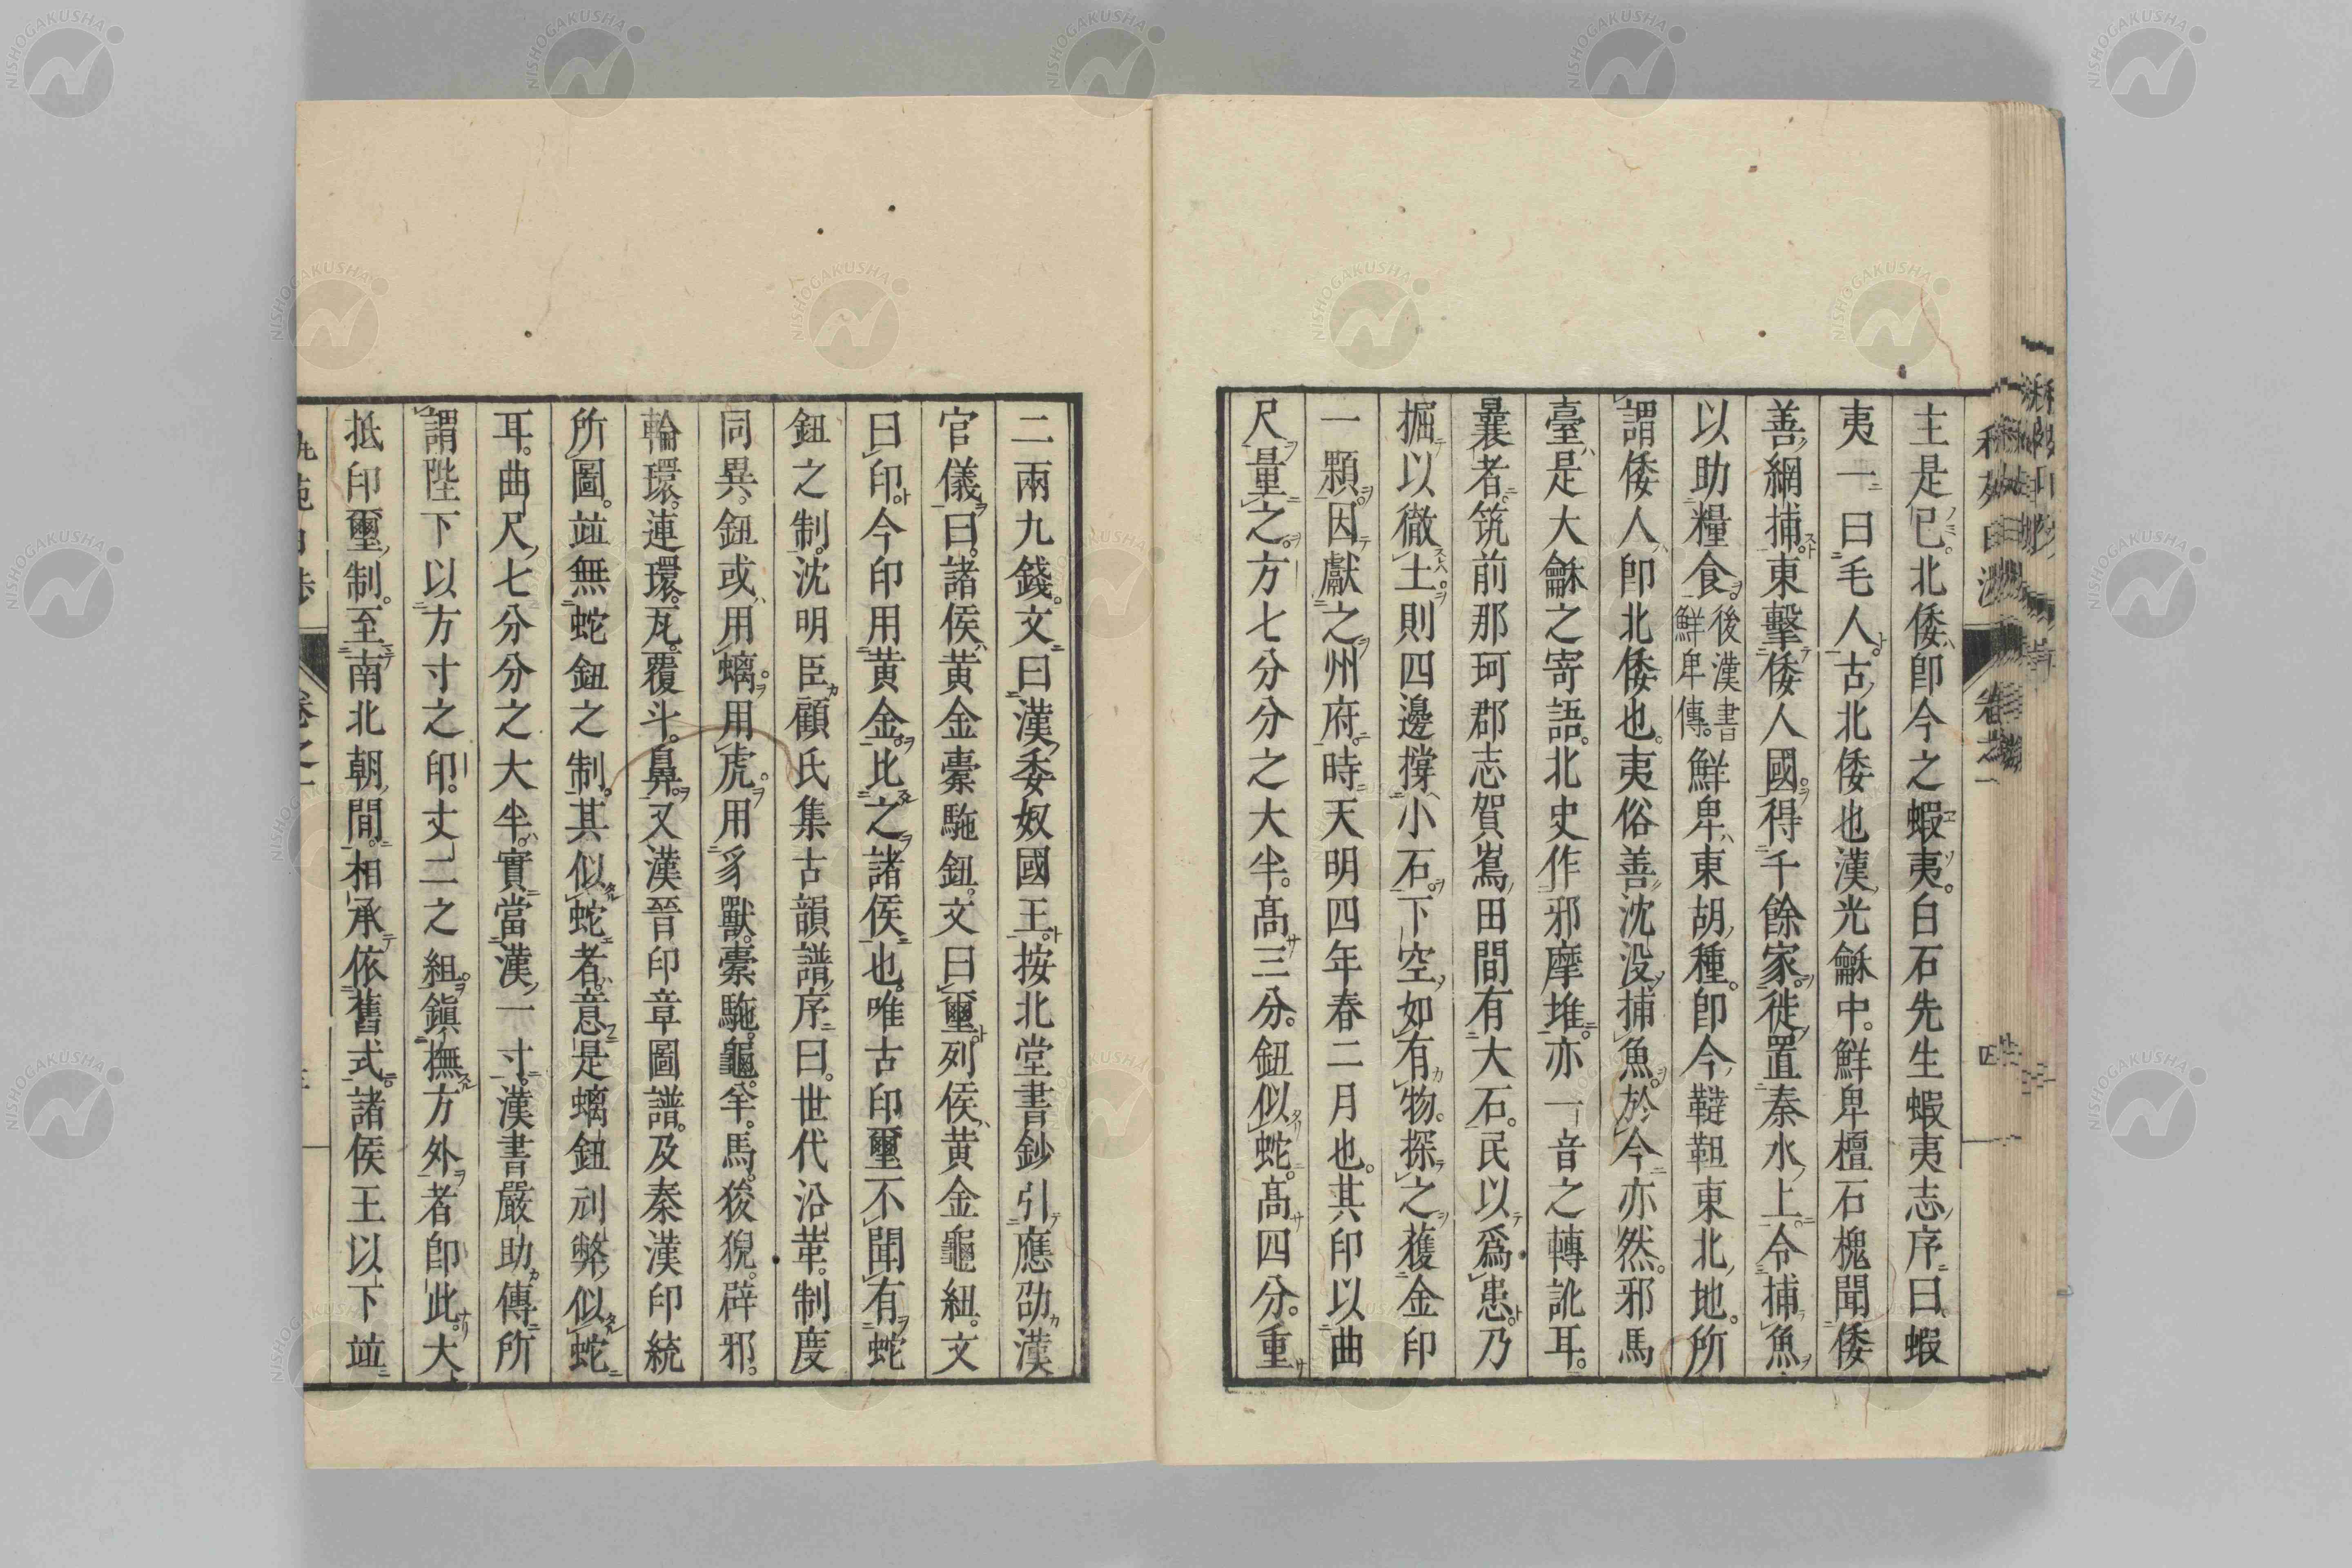 主是已。北倭即今之蝦夷。白石先生蝦夷志序曰。蝦
夷一曰毛人。古北倭也漢光龢中。鮮卑檀石槐聞倭
善網捕。東擊倭人國。得千餘家。徙置秦水上。令捕魚
以助糧食。後漢書鮮卑傳。鮮卑東胡種。即今韃靼東北地。所
謂倭人即北倭也。夷俗善沈没捕魚。於今亦然。邪馬
臺是大龢之寄語。北史作邪摩堆。亦一音之轉訛耳。
曩者。筑前那珂郡志賀嶌田間有大石。民以爲患。乃
掘以徹土。則四邊撐小石。下空如有物。探之獲金印
一顆。因獻之州府。時天明四年春二月也。其印以曲
尺量之。方七分分之大半。髙三分。鈕似蛇。髙四分。重
二兩九錢。文曰漢委奴國王。按北堂書鈔引應劭漢
官儀曰。諸侯黄金橐駞鈕。文曰璽。列侯黄金龜紐。文
曰印。今印用黄金。比之諸侯也。唯古印璽不聞有蛇
鈕之制。沈明臣顧氏集古韻譜序曰。世代沿革。制度
同異。鈕或用螭。用虎。用豸獸。橐駞。龜。羊。馬。狻猊。辟邪。
輪環。連環。瓦。覆斗。鼻。又漢晉印章圖譜。及秦漢印統
所圖。並無蛇鈕之制。其似蛇者。意是螭鈕刓弊似蛇
耳。曲尺七分分之大半。實當漢一寸。漢書嚴助傳所
謂陛下以方寸之印。丈二之組。鎭撫方外者即此。大
抵印璽制。至南北朝間。相承依舊式。諸侯王以下並